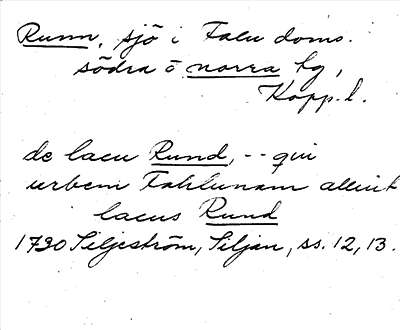 Runn, sjö i Falu doms.
södra o norra tg,
Kopp. l.
de lacu Rund, -- qui
urbem Fahlunam alluit
lacus Rund
1730 Siljeström, Siljan, ss. 12, 13.